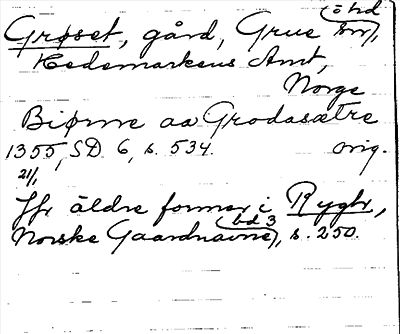 Grøset, gård, Grue sn,
Hedemarkens Amt,
Norge
Biørne aa Grodasætre
1355, SD 6, s. 534. orig.
21/1
Jfr äldre former i Rygh,
Norske Gaardnavne (bd 3), s. 250.